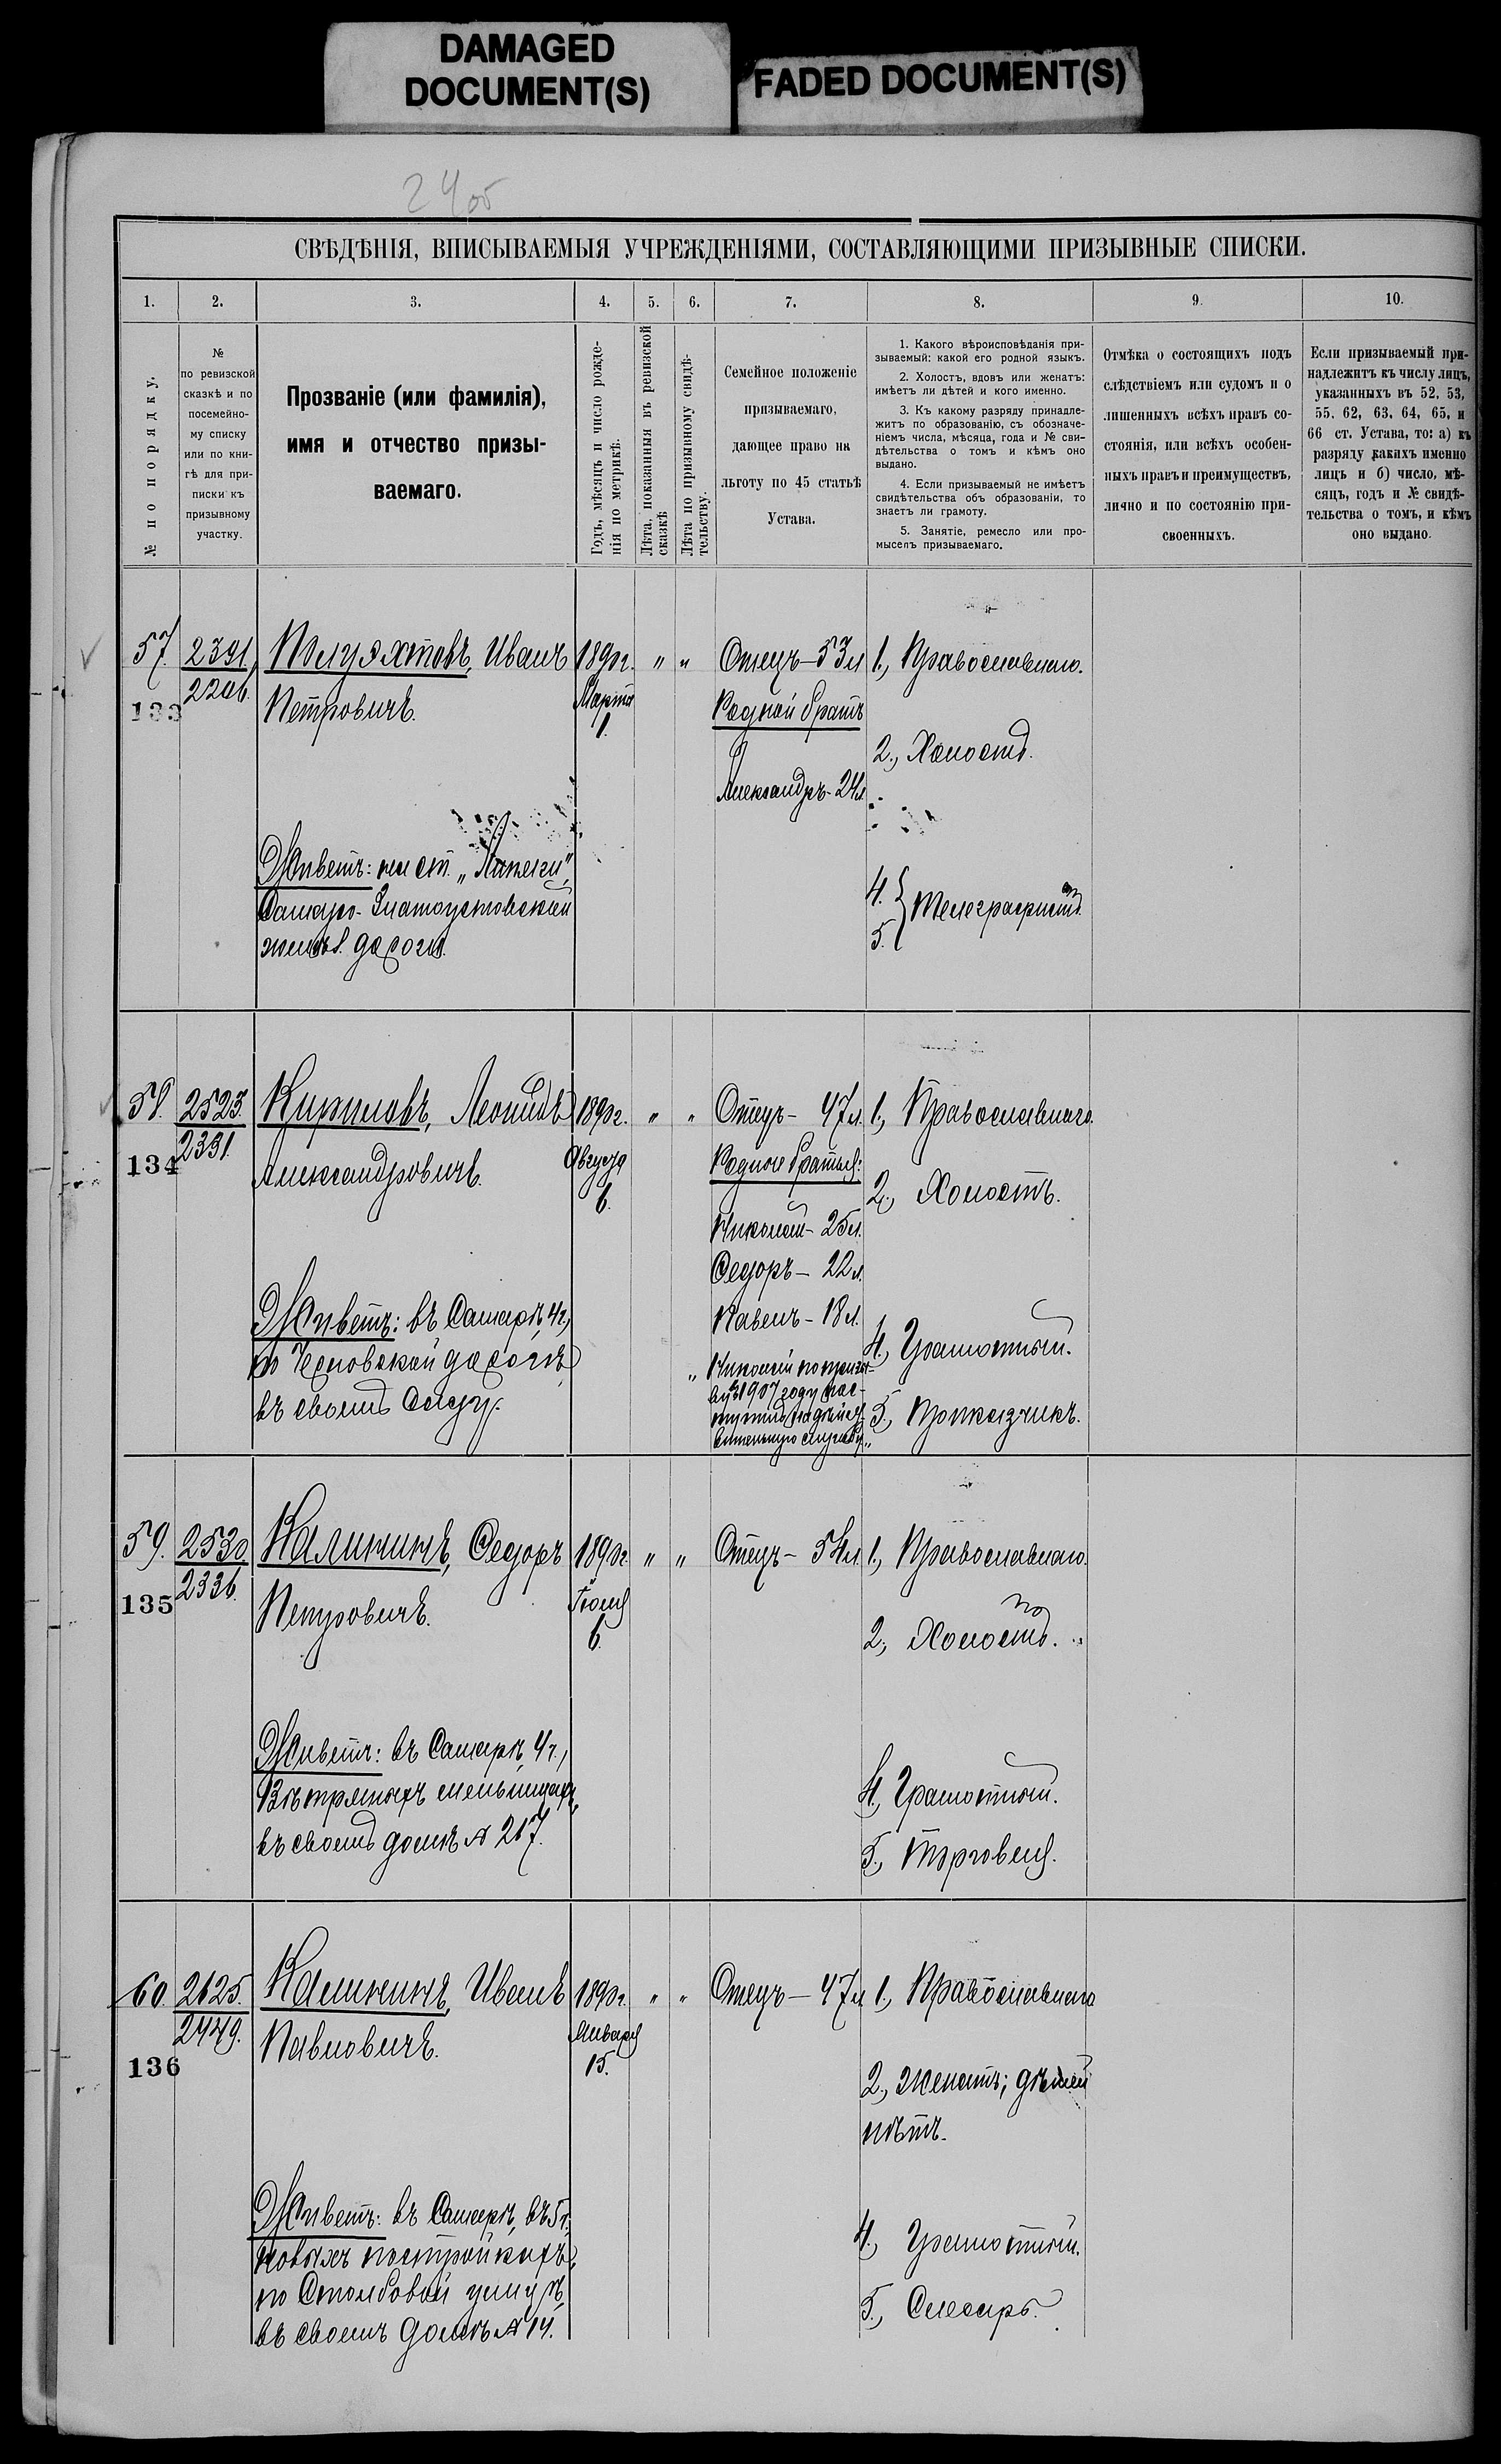 DAMAGED
DOCUMENT(S)
FADED DOCUMENT(S)
24об
СВѢДѢНІЯ, ВПИСЫВАЕМЫЯ УЧРЕЖДЕНІЯМИ, СОСТАВЛЯЮЩИМИ ПРИЗЫВНЫЕ СПИСКИ.
1.
2.
3.
4.
5.
6.
7.
8.
9.
10.
№ по порядку.
№
по ревизской
сказкѣ и по
посемейно-
му списку
или по кни-
гѣ для при-
писки къ
призывному
участку.
Прозваніе (или фамилія),
имя и отчество призы-
ваемаго.
Годъ, мѣсяцъ и число рожде-
нія по метрикѣ.
Лѣта, показанныя въ ревизской
сказкѣ
Лѣта по призывному свидѣ-
тельству.
Семейное положеніе
призываемаго,
дающее право на
льготу по 45 статьѣ
Устава.
1. Какого вѣроисповѣданія при-
зываемый: какой его родной языкъ.
2. Холостъ, вдовъ или женатъ:
имѣетъ ли дѣтей и кого именно.
3. Къ какому разряду принадле-
житъ по образованію, съ обозначе-
ніемъ числа, мѣсяца, года и № сви-
дѣтельства о томъ и кѣмъ оно
выдано.
4. Если призываемый не имѣетъ
свидѣтельства объ образованіи, то
знаетъ ли грамоту.
5. Занятіе, ремесло или про-
мыселъ призываемаго.
Отмѣка о состоящихъ подъ
слѣдствіемъ или судомъ и о
лишенныхъ всѣхъ правъ со-
стоянія, или всѣхъ особен-
ныхъ правъ и преимуществъ,
лично и по состоянію при-
своенныхъ.
Если призываемый при-
надлежитъ къ числу лицъ,
указанныхъ въ 52, 53,
55. 62, 63, 64, 65, и
66 ст. Устава, то: а) къ
разряду какихъ именно
лицъ и б) число, мѣ-
сяцъ, годъ и № свидѣ-
тельства о томъ, и кѣмъ
оно выдано.
57.
133
2391.
2206.
Иванъ
Петровичъ.
Живетъ: на ст.
Самаро-Златоустовской
желѣз. дороги.
1890 г.
Марта
1.
" "
Отецъ - 53 л.
Родной братъ
Александръ - 24 л.
1., Православнаго.
2., Холостъ.
4.
5.
Телеграфистъ
58.
134
2525.
2331.
Кириловъ, Леонидъ
Александровичъ.
Живетъ: въ Самарѣ, 4 ч.,
по Черновской дорогѣ,
въ своемъ саду.
1890 г.
Августа
6.
" "
Отецъ - 47 л.
Родные братья:
Николай - 25 л.
Ѳедоръ - 22 л.
Павелъ - 18 л.
" Николай по призы-
ву 1907 году пос-
тупилъ на дѣйст-
вительную службу."
1., Православнаго.
2., Холостъ.
4., Грамотный.
5., Приказчикъ.
59.
135
2530
2336.
Калининъ, Ѳедоръ
Петровичъ.
Живетъ: въ Самарѣ, 4 ч.,
Вѣтряныхъ мельницахъ,
въ своемъ домѣ № 217.
1890 г.
Іюня
6.
" "
Отецъ - 54 л.
1., Православнаго.
2., Холостъ.
4., Грамотный.
5., Торговля.
60.
136
2625.
2449.
Калининъ, Иванъ
Павловичъ.
Живетъ: въ Самарѣ, въ 5 ч.
новыхъ постройкахъ,
по Столбовой улицѣ,
въ своемъ домѣ № 14.
1890 г.
Января
15.
" "
Отецъ - 47 л.
1., Православнаго
2., Женатъ; дѣтей
нѣтъ.
4., Грамотный.
5., Слесарь.